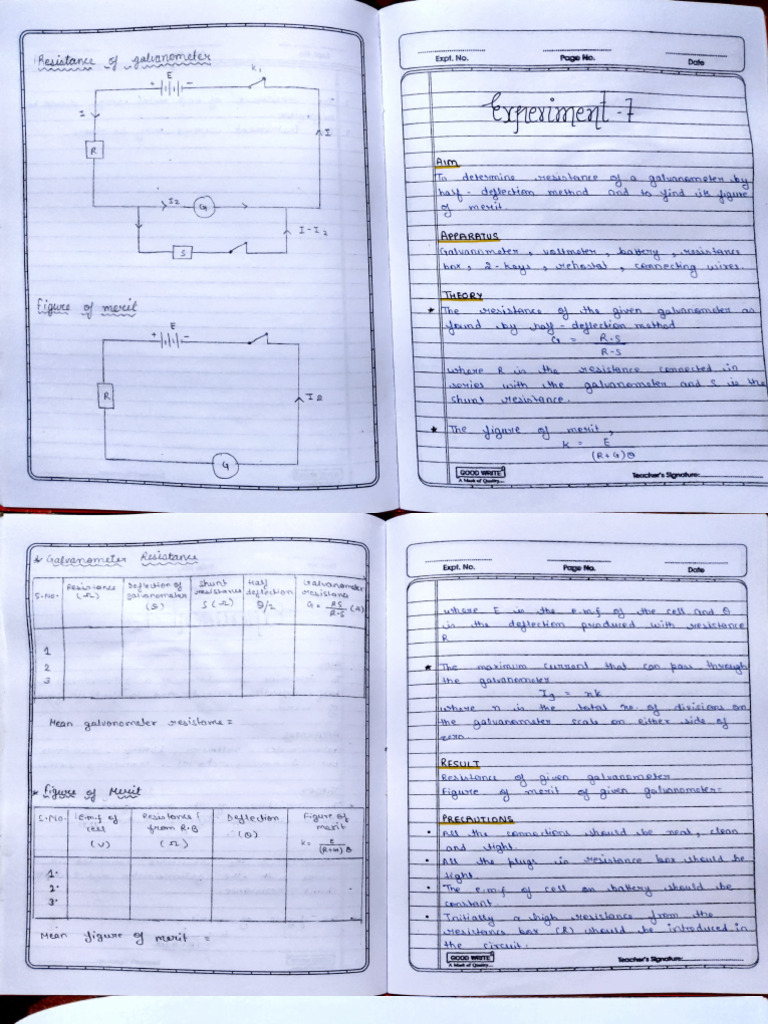 Resistance of galvanometer
E
+ -
K1
I
R
I
I2
G
I-I2
S
Figure of merit
E
+ -
R
G
Expt. No.
Page No.
Date
Experiment-7
AIM
To determine resistance of a galvanometer by
half-deflection method and to find its figure
of merit.
APPARATUS
Galvanometer, voltmeter, battery, resistance
box, 2-keys, rehostat, connecting wires.
THEORY
* The resistance of the given galvanometer as
found by half-deflection method
G = R.S
R-S
where R is the resistance connected in
series with the galvanometer and S is the
shunt resistance.
* The figure of merit,
k = E
(R+G)θ
GOOD WRITE
A Mark of Quality...
Teacher's Signature:
* Galvanometer Resistance
S.No.
Resistance
(Ω)
Deflection of
galvanometer
(θ)
Shunt
resistance
S (Ω)
Half
deflection
θ/2
Galvanometer
resistance
G = RS
R-S (Ω)
1
2
3
Mean galvonometer resistame =
* Figure of Merit
S.No.
e.m.f of
cell
(V)
Resistance
from R.B
(Ω)
Deflection
(θ)
Figure of
merit
k= E
(R+G) θ
1.
2.
3.
Mean figure of merit =
Expt. No.
Page No.
Date
where E is the e.m.f of the cell and θ
is the deflection produced with resistance
R
* The maximum current that can pass through
the galvanometer
Ig = nk
where n is the total no. of divisions on
the galvanometer scale on either side of
zero.
RESULT
Resistance of given galvanometer
Figure of merit of given galvanometer=
PRECAUTIONS
• All the connections should be neat, clean
and tight.
• All the plugs in resistance box should be
tight.
• The e.m.f of cell on battery should be
constant.
• Initially a high resistance from the
resistance box (R) should be introduced in
the circuit.
GOOD WRITE
A Mark of Quality...
Teacher's Signature: